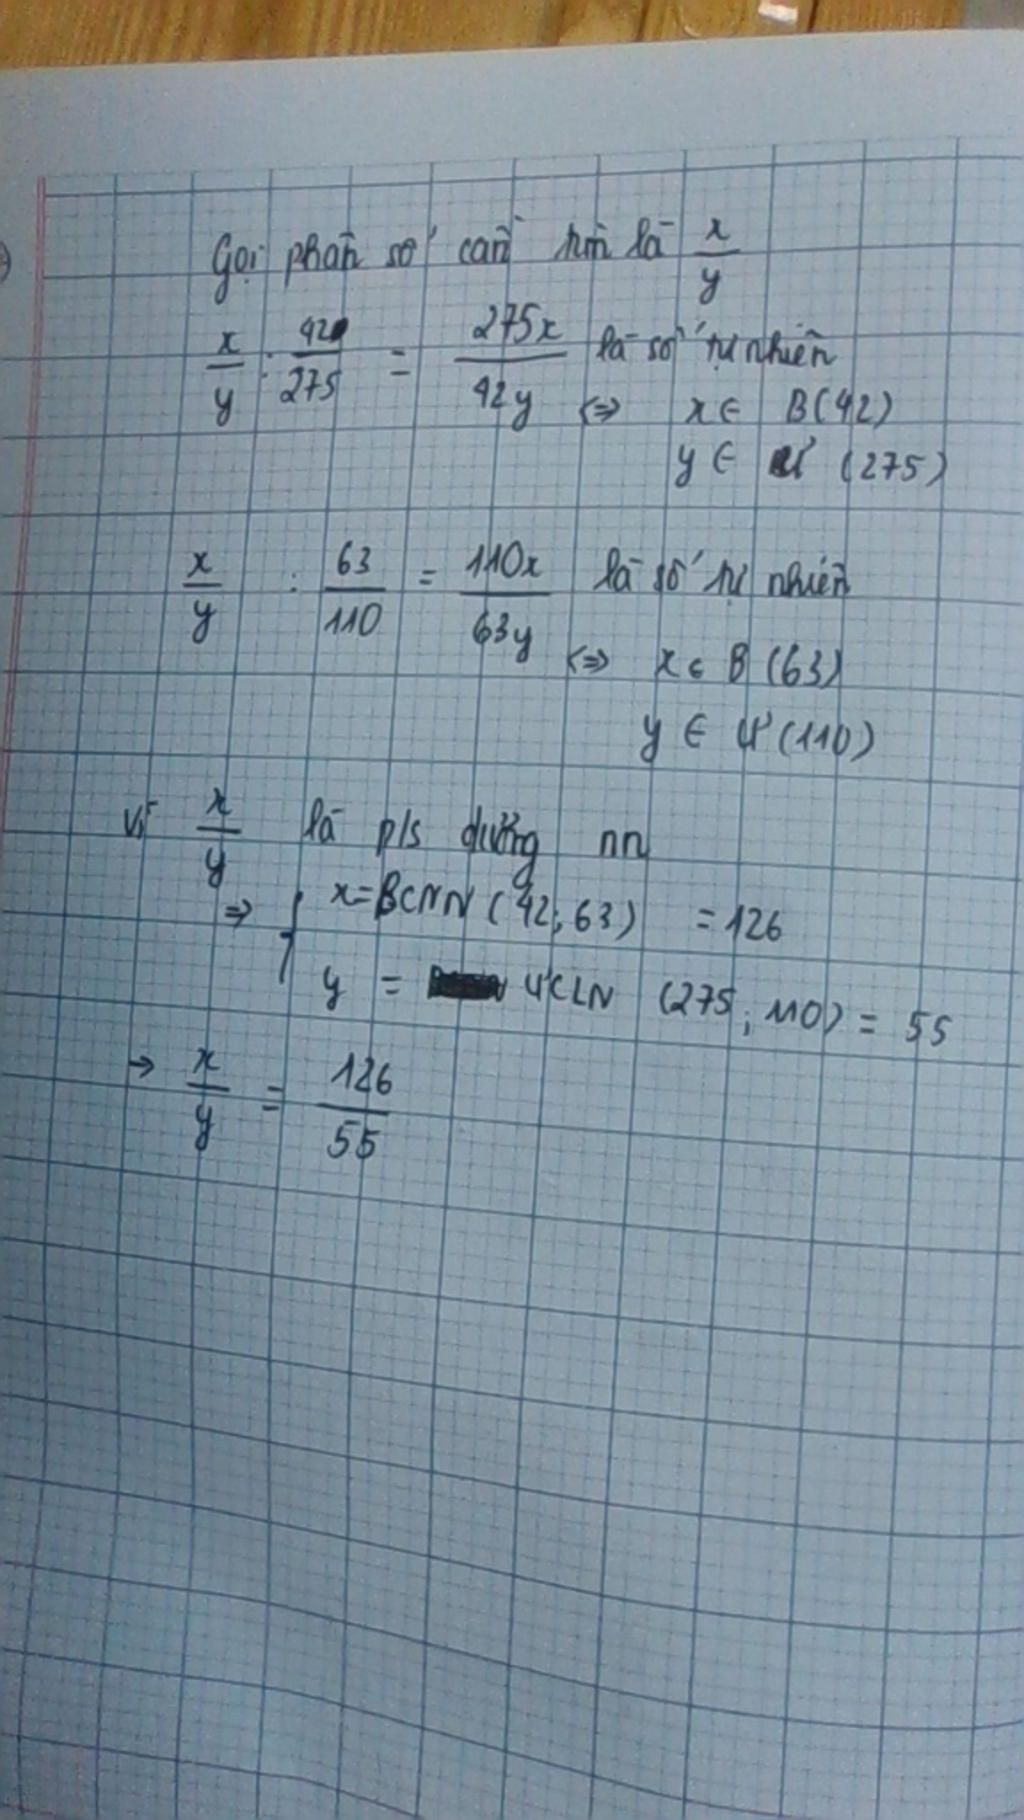 Gọi phân số cần tìm là x/y
x/y : 42/275 = 275x/42y là số tự nhiên
<=> x ∈ B(42)
y ∈ Ư (275)
x/y : 63/110 = 110x/63y là số tự nhiên
<=> x ∈ B (63)
y ∈ Ư (110)
Vì x/y là p/s dương nn
=> { x = BCNN (42; 63) = 126
y = ƯCLN (275; 110) = 55
→ x/y = 126/55